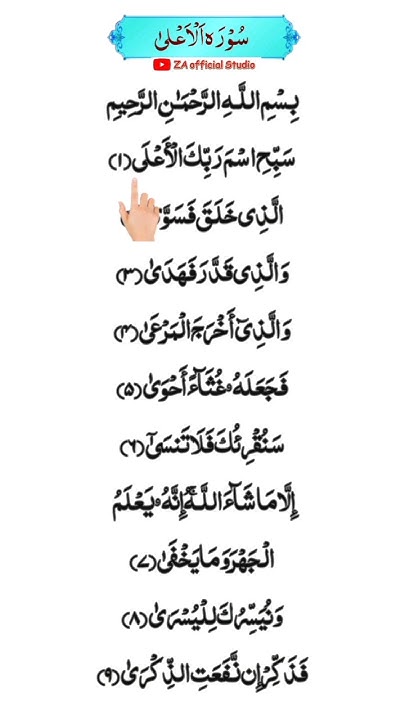 سُوْرَہ اَلْاَعْلىٰ
ZA official Studio
بِسْمِ اللَّهِ الرَّحْمَـٰنِ الرَّحِيمِ
سَبِّحِ اسْمَ رَبِّكَ الْأَعْلَى (۱)
الَّذِى خَلَقَ
وَالَّذِى قَدَّرَ فَهَدَىٰ (۳)
وَالَّذِىٓ أَخْرَجَ الْمَرْعَىٰ (۴)
فَجَعَلَهُۥ غُثَآءً أَحْوَىٰ (۵)
سَنُقْرِئُكَ فَلَا تَنسَىٰٓ (۶)
إِلَّا مَا شَآءَ اللَّهُ ۚ إِنَّهُۥ يَعْلَمُ
الْجَهْرَ وَمَا يَخْفَىٰ (۷)
وَنُيَسِّرُكَ لِلْيُسْرَىٰ (۸)
فَذَكِّرْ إِن نَّفَعَتِ الذِّكْرَىٰ (۹)